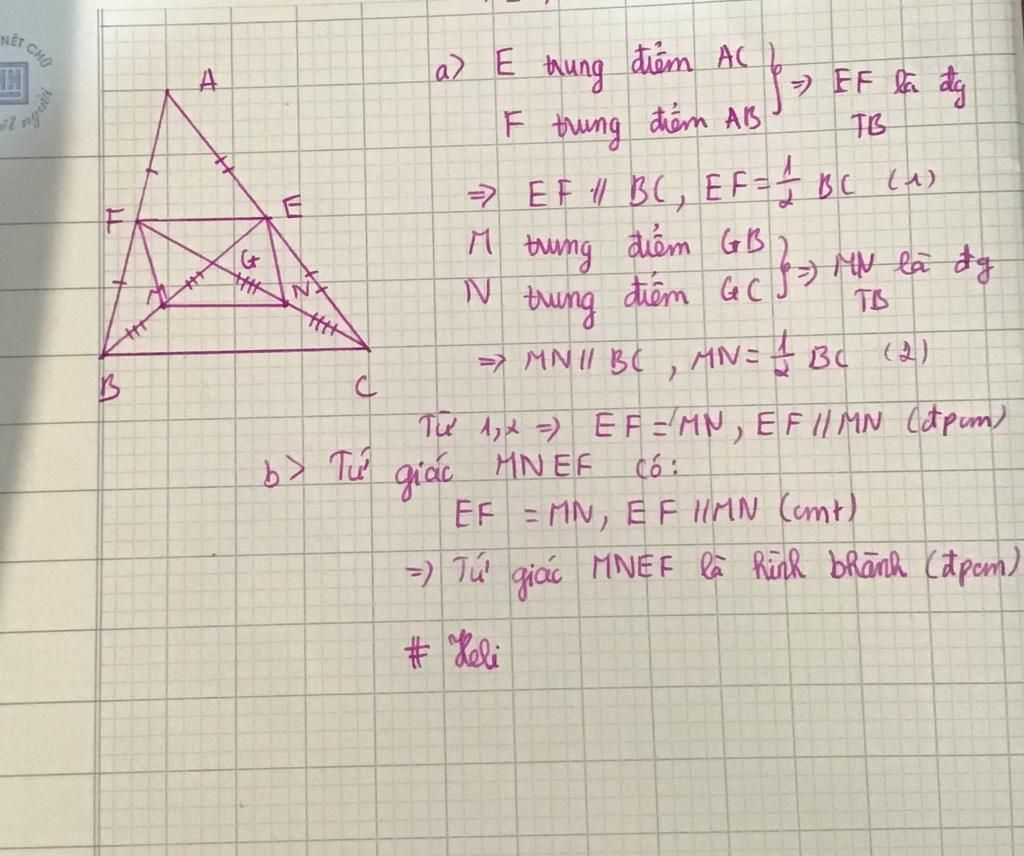 NÉT CHỮ
A
F
E
G
M
N
B
C
a> E trung điểm AC
F trung điểm AB } => EF là đg TB
=> EF // BC, EF = 1/2 BC (1)
M trung điểm GB
N trung điểm GC } => MN là đg TB
=> MN // BC, MN = 1/2 BC (2)
Từ 1,2 => EF = MN, EF // MN (đpcm)
b> Tứ giác MNEF có:
EF = MN, EF // MN (cmt)
=> Tứ giác MNEF là hình bhành (đpcm)
#